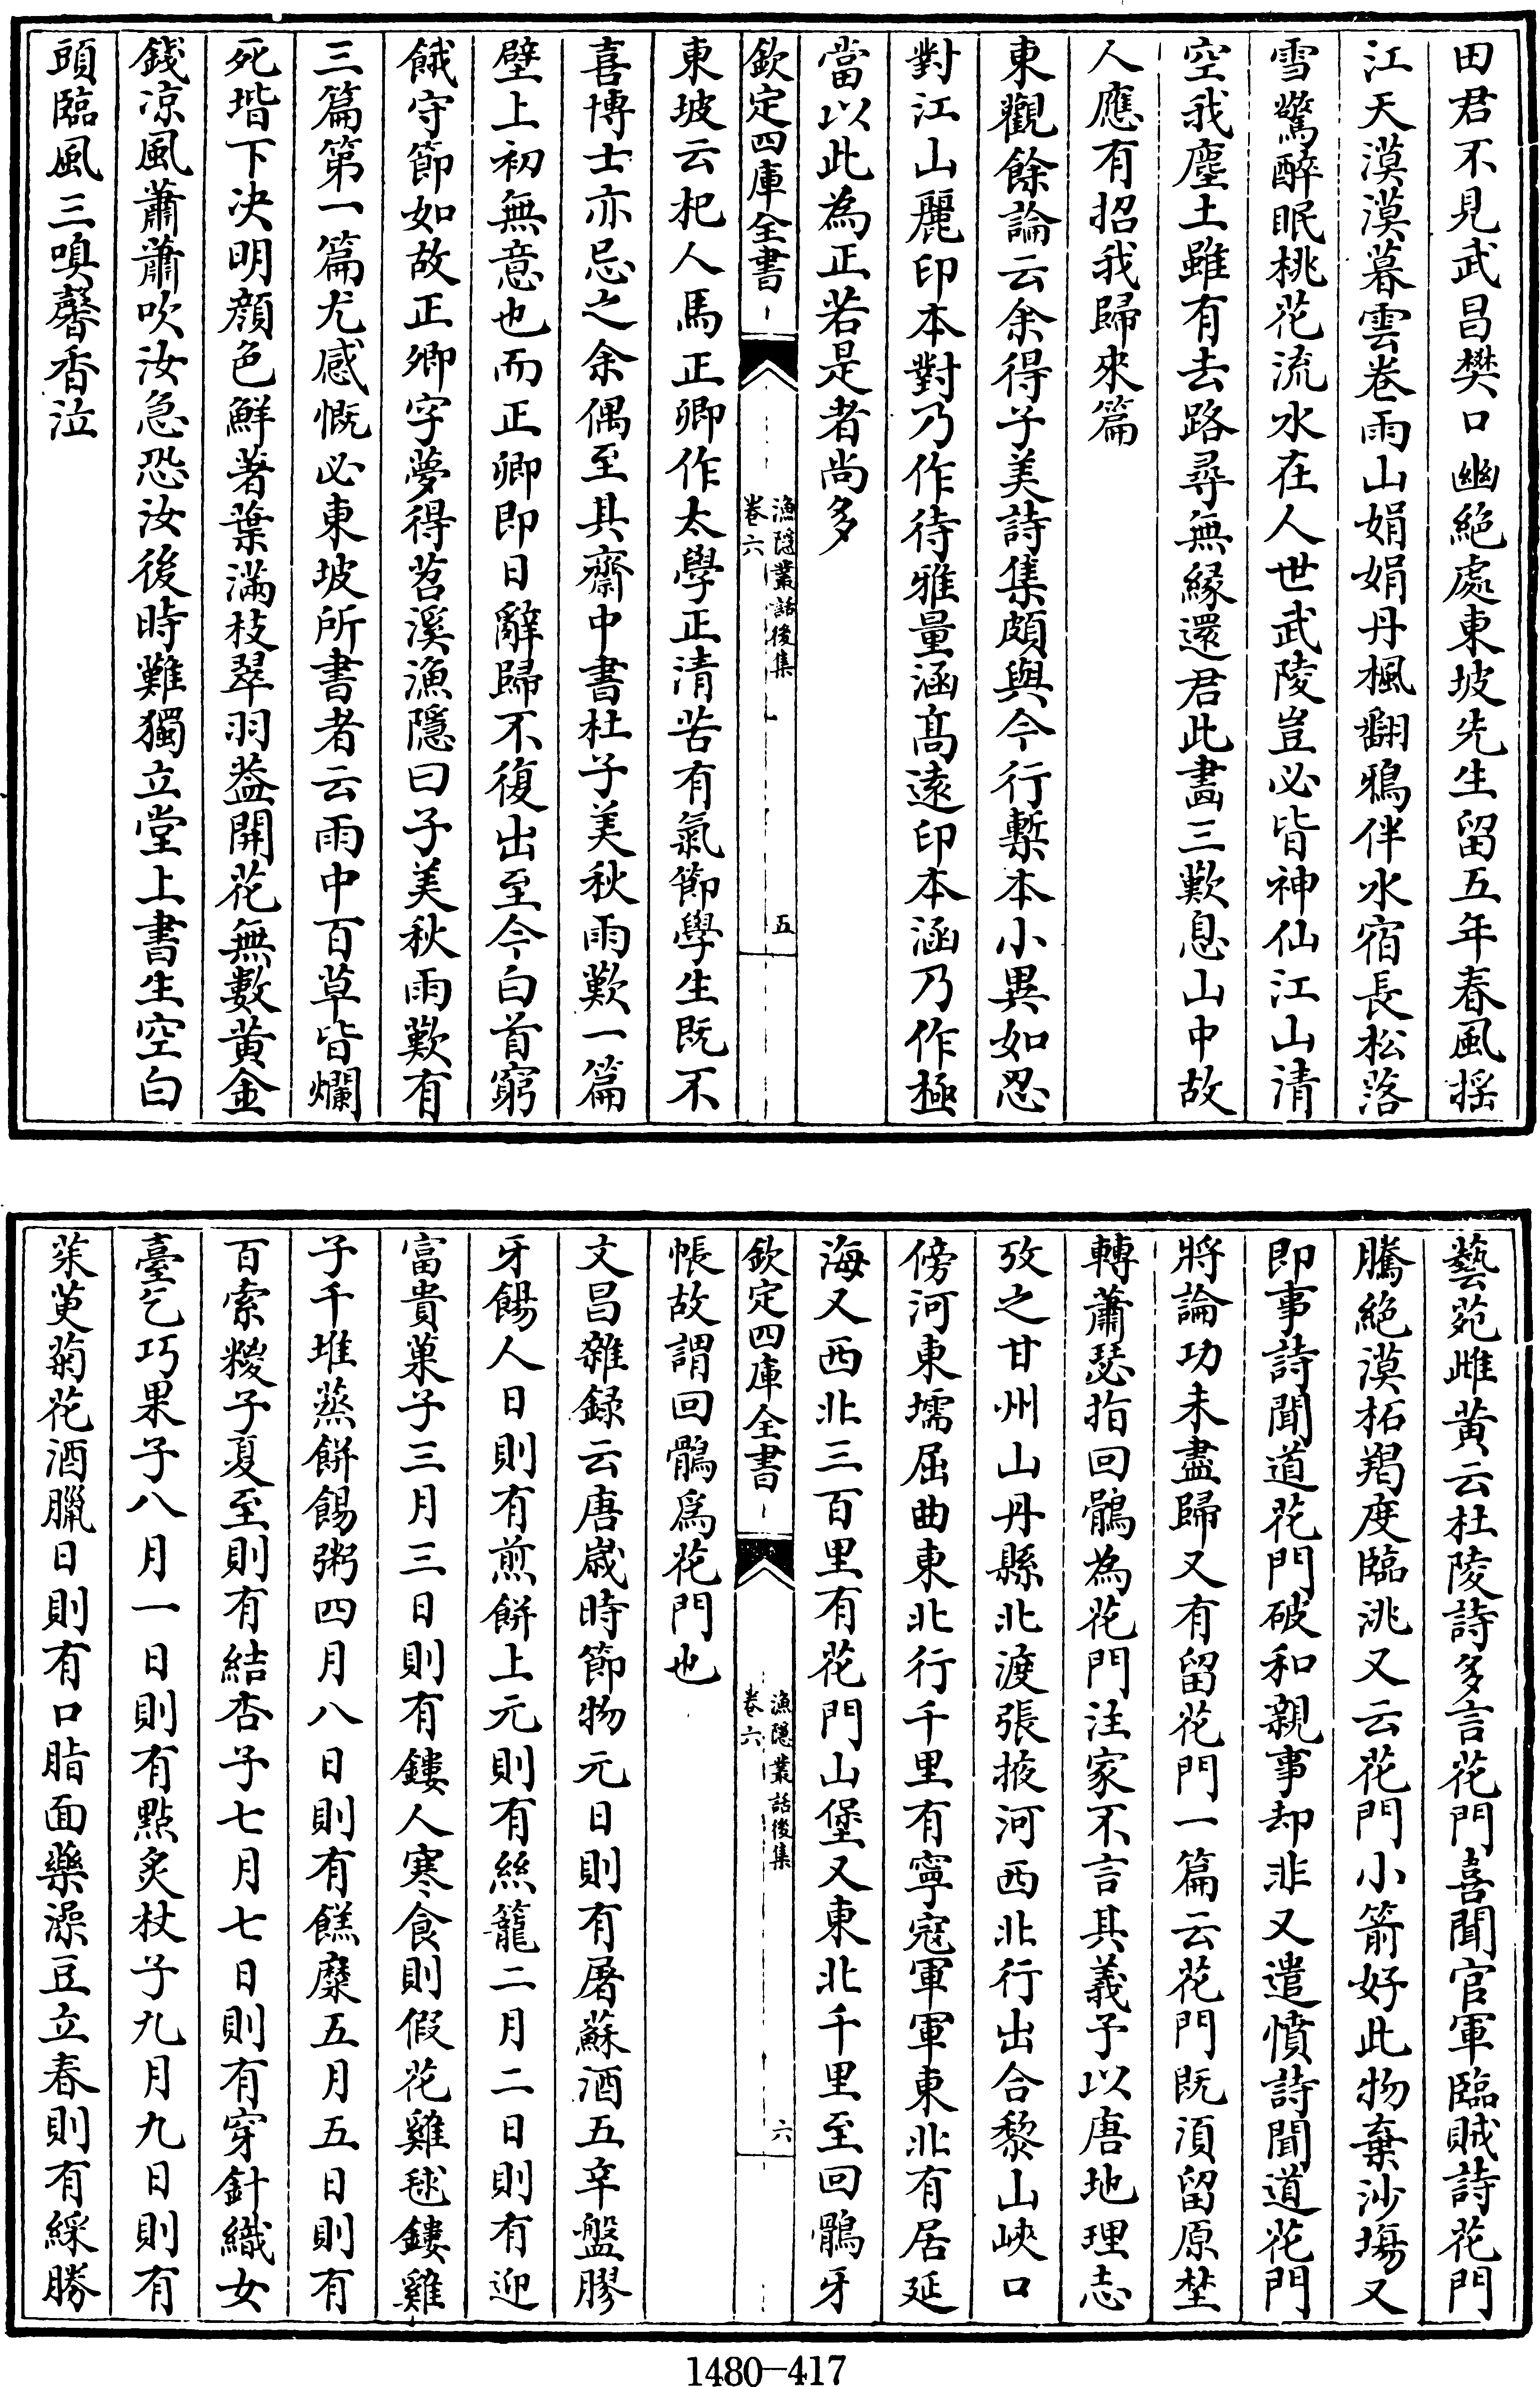 田君不見武昌樊口幽絶處東坡先生留五年春風揺
江天漠漠暮雲卷雨山娟娟丹楓翻鴉伴水宿長松落
雪驚醉眠桃花流水在人世武陵豈必皆神仙江山清
空我塵土雖有去路尋無緣還君此畫三歎息山中故
人應有招我歸來篇
東觀餘論云余得子美詩集頗與今行槧本小異如忍
對江山麗印本對乃作待雅量涵髙遠印本涵乃作極
當以此為正若是者尚多
欽定四庫全書
漁隱叢話後集
卷六
五
東坡云杞人馬正卿作太學正清苦有氣節學生既不
喜博士亦忌之余偶至其齋中書杜子美秋雨歎一篇
壁上初無意也而正卿即日辭歸不復出至今白首窮
餓守節如故正卿字夢得苕溪漁隱曰子美秋雨歎有
三篇第一篇尤感慨必東坡所書者云雨中百草皆爛
死堦下决明顔色鮮著葉滿枝翠羽葢開花無數黄金
錢凉風蕭蕭吹汝急恐汝後時難獨立堂上書生空白
頭臨風三嗅馨香泣
藝苑雌黄云杜陵詩多言花門喜聞官軍臨賊詩花門
騰絶漠柘羯度臨洮又云花門小箭好此物棄沙塲又
即事詩聞道花門破和親事却非又遣憤詩聞道花門
將論功未盡歸又有留花門一篇云花門既須留原埜
轉蕭瑟指回鶻為花門注家不言其義予以唐地理志
攷之甘州山丹縣北渡張掖河西北行出合黎山峽口
傍河東壖屈曲東北行千里有寧宼軍軍東北有居延
海又西北三百里有花門山堡又東北千里至回鶻牙
欽定四庫全書
漁隱叢話後集
卷六
六
帳故謂回鶻爲花門也
文昌雜録云唐嵗時節物元日則有屠蘇酒五辛盤膠
牙餳人日則有煎餅上元則有絲籠二月二日則有迎
富貴菓子三月三日則有鏤人寒食則假花雞毬鏤雞
子千堆蒸餅餳粥四月八日則有餻糜五月五日則有
百索糉子夏至則有結杏子七月七日則有穿針織女
臺乞巧果子八月一日則有點炙杖子九月九日則有
茱萸菊花酒臘日則有口脂面藥澡豆立春則有綵勝
1480—417